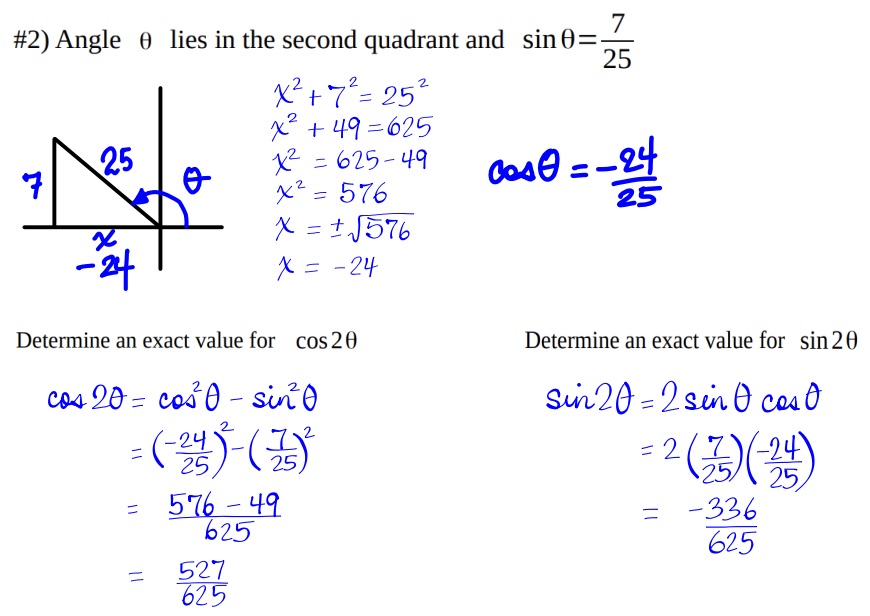 #2) Angle θ lies in the second quadrant and sin θ = 7/25
x² + 7² = 25²
x² + 49 = 625
x² = 625 - 49
x² = 576
x = ±√576
x = -24
7
25
θ
x
-24
cos θ = -24/25
Determine an exact value for cos 2θ
cos 2θ = cos²θ - sin²θ
= (-24/25)² - (7/25)²
= 576 - 49/625
= 527/625
Determine an exact value for sin 2θ
sin 2θ = 2 sin θ cos θ
= 2 (7/25)(-24/25)
= -336/625